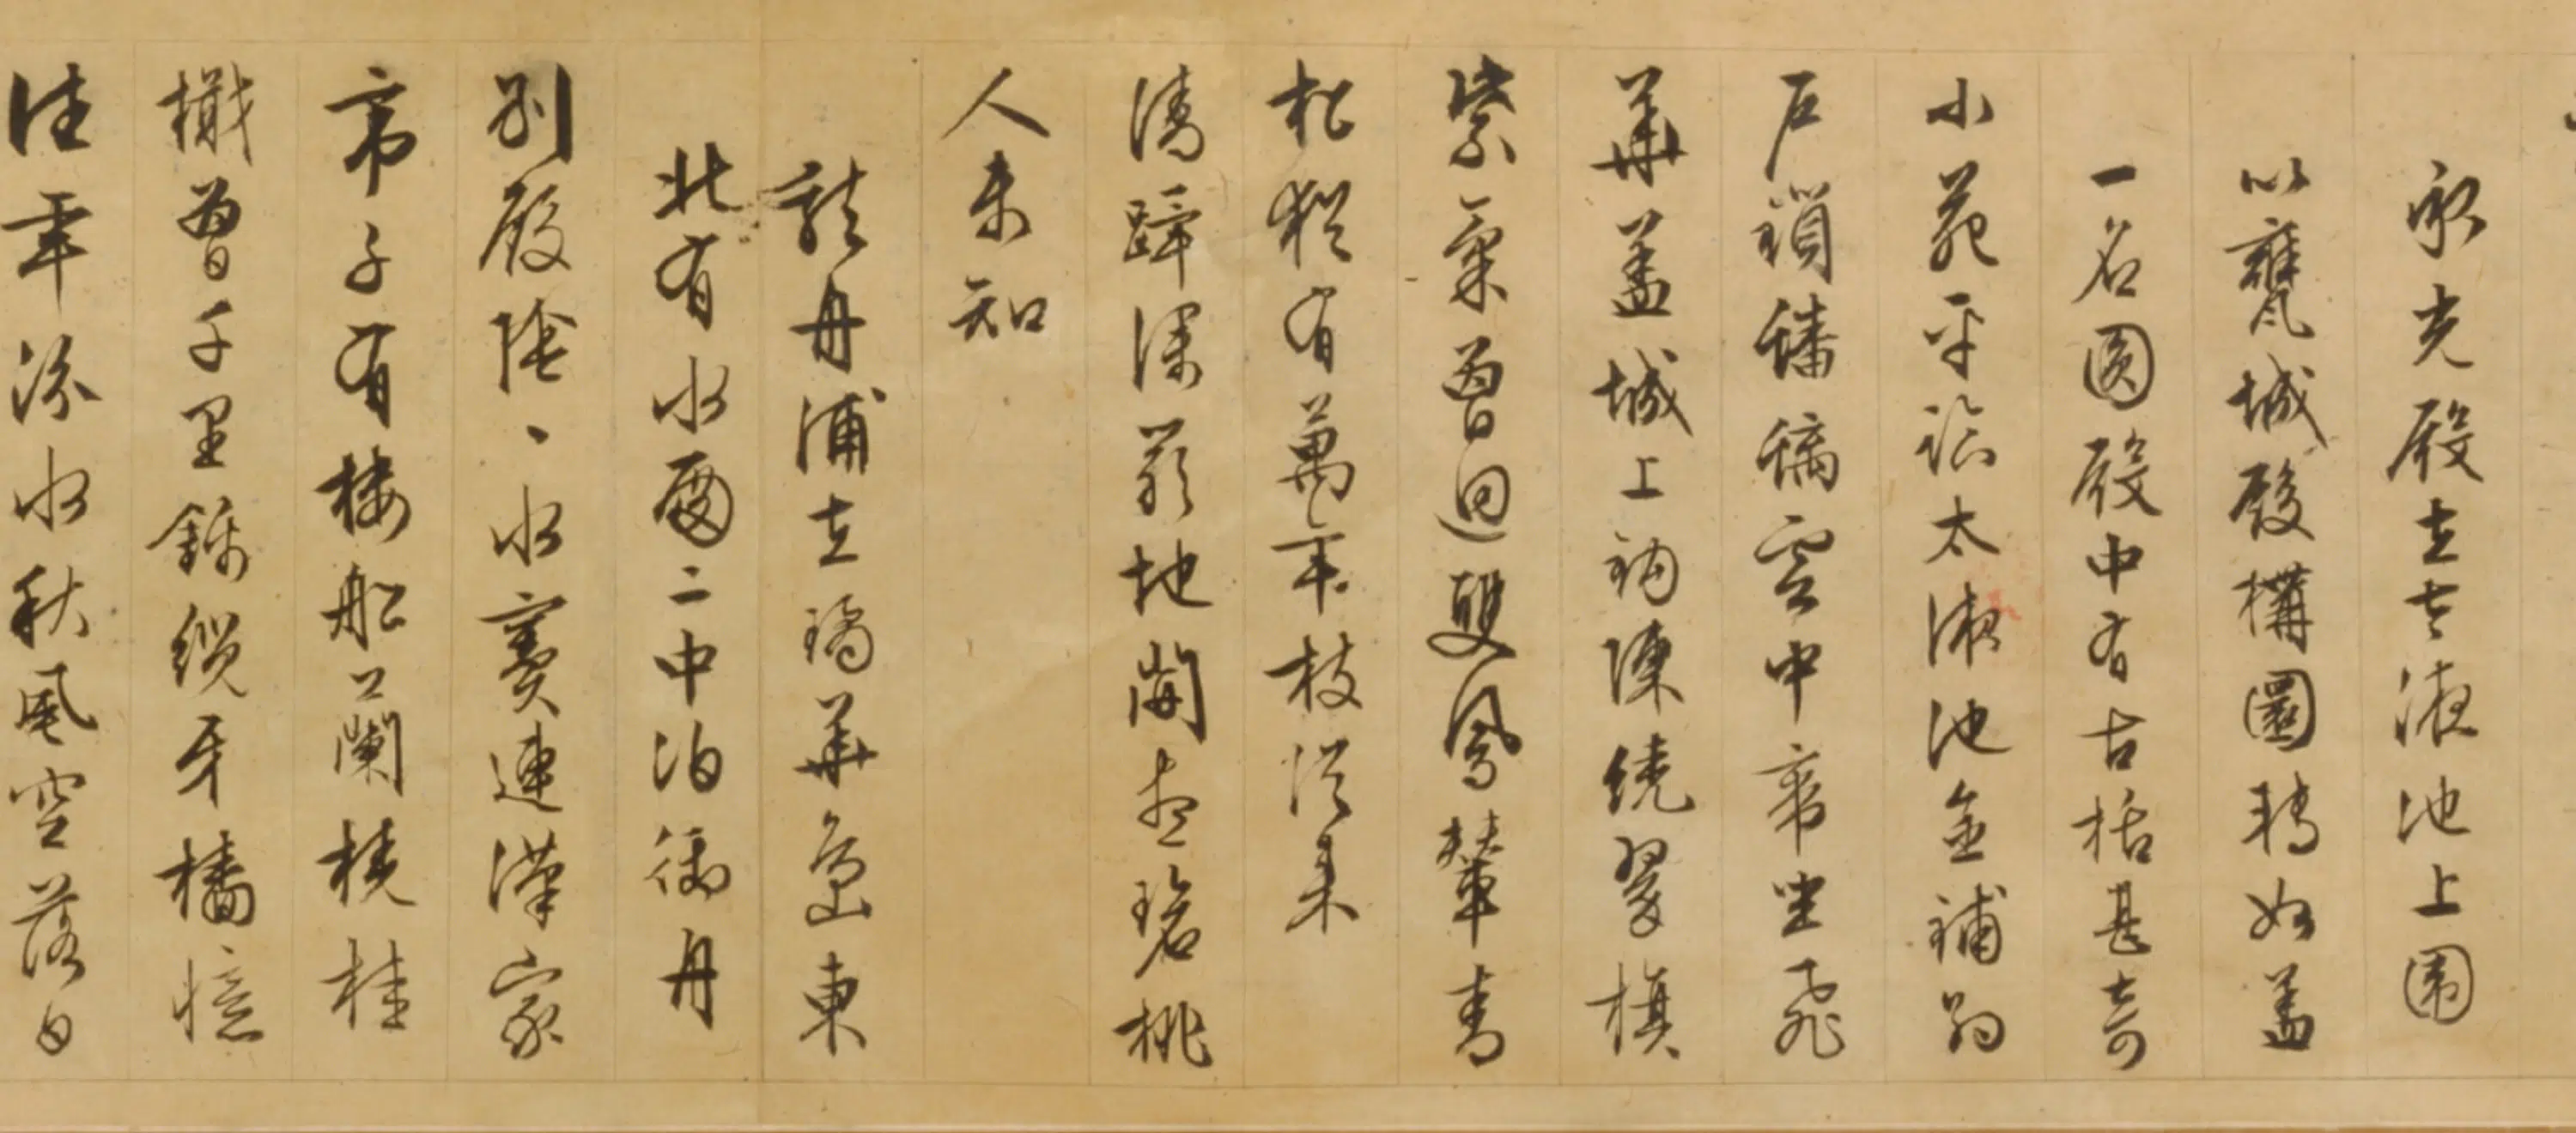 承光殿在太液池上圍
以甕城殿構圓轉如蓋
一名圓殿中有古栝甚奇
小苑平臨太液池金鋪約
戶鎖蟠螭雲中帝坐飛
華蓋城上鉤陳繞翠旗
紫氣曾迴雙鳳輦青
松猶有萬年枝從來
清蹕深嚴地開盡碧桃
人未知
龍舟浦在瓊華島東
北有水面二中泊御舟
別殿陰、水竇連漢家
帝子有樓船蘭橈桂
檝曾千里錦纜牙檣憶
往年流水秋風空落日